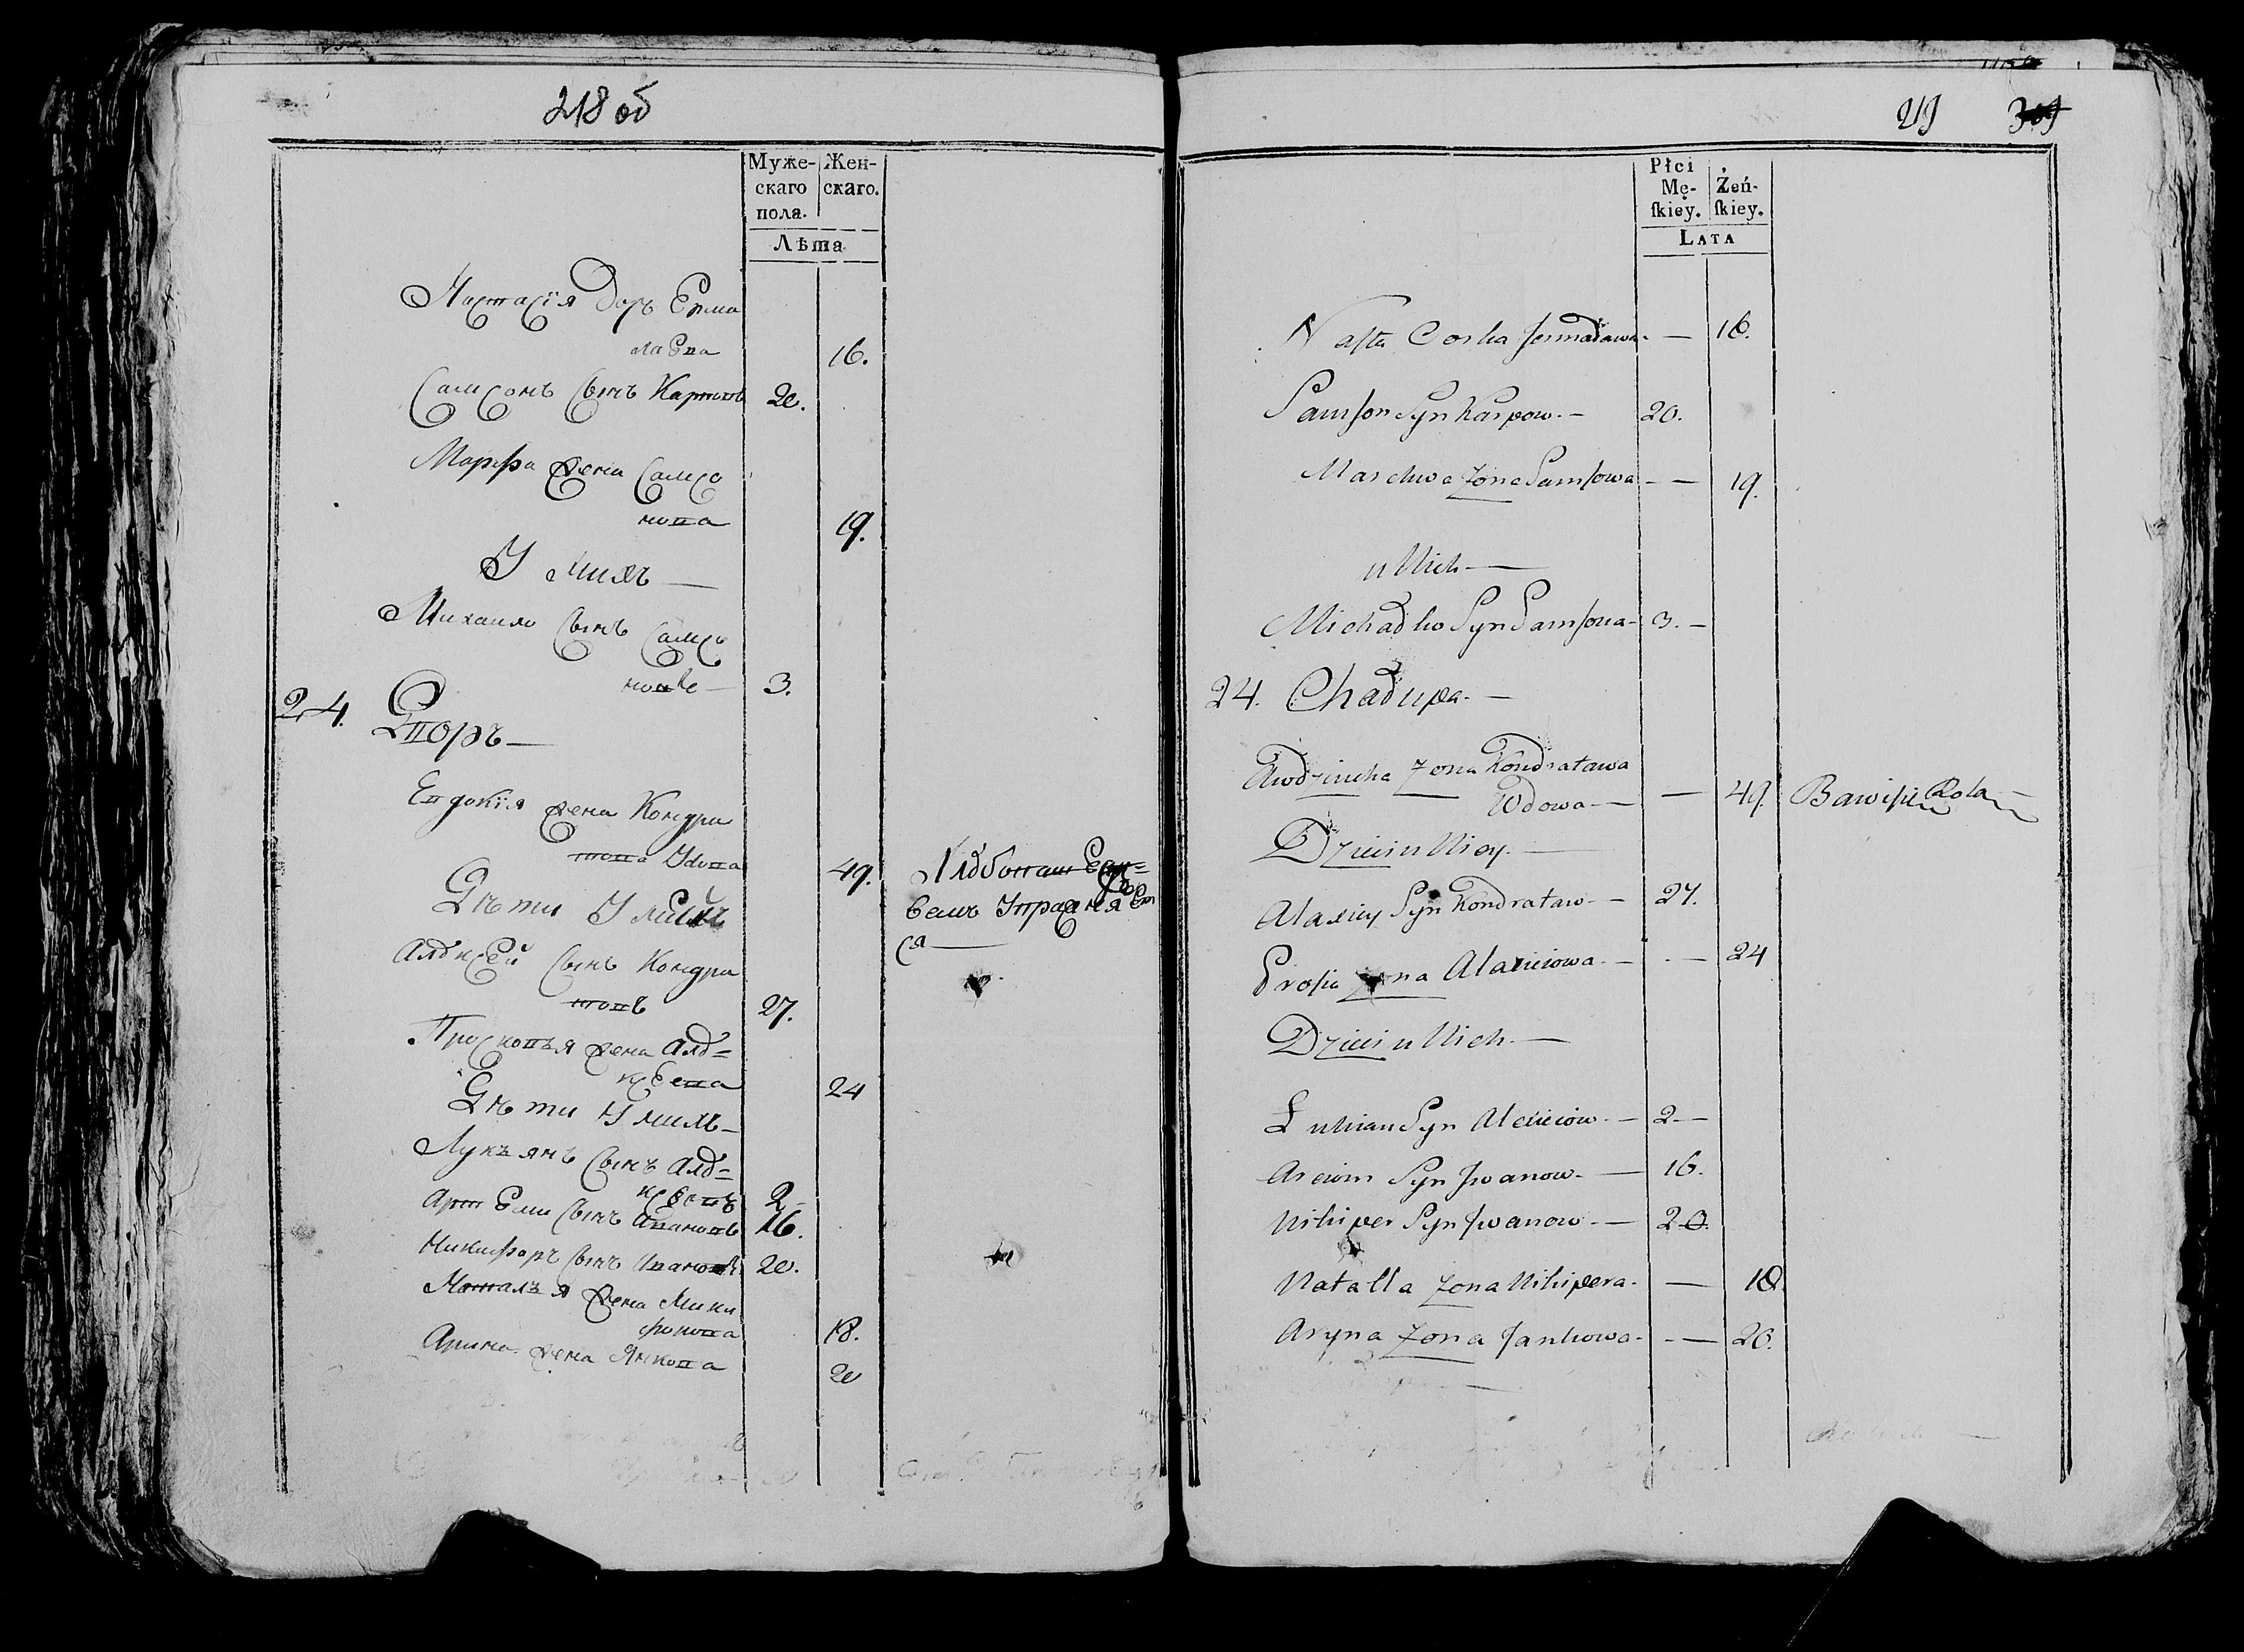 218 об
Муже-
скаго
пола.
Жен-
скаго.
Лѣта
Настасія дочъ Ерма
лаева
16.
Самсонъ сынъ Карповъ 20.
Марфа жена Самсо
нова
19.
У нихъ —
Михаило сынъ Самсо
новъ — 3.
24. Дворъ —
Евдокія жена Кондра
това Вдова
49.
Дѣти У ней
Алексей сынъ Кондра
товъ 27.
Просковья жена Але=
ксеева 24
Дѣти У нихъ —
Лукьянъ сынъ Але=
ксеевъ 2
Артеми сынъ Ивановъ 16.
Никифаръ сынъ Ивановъ 20.
Наталья жена Ники
форова 18.
Арина жена Янкова
20
Хлебопаш
Упражняет
ся —
219 309
Płci
Mę-
ſkiey.
Żeń-
ſkiey.
LATA
Naſta Corka Jermaława — 16.
Samſon Syn Karpow — 20.
Marchwa Zona Samſowa — 19.
u Nich —
Michałko Syn Samſona — 3. —
24. Chałupa —
Awdziucha Zona Kondratawa
Wdowa — 49. Bawiſie Rolą
Dzieci u Niey —
Alaxiey Syn Kondrataw — 27.
Proſia Zona Alaxieiowa — 24
Dzieci u Nich —
Łukian Syn Alexieiow — 2 —
Arciom Syn Jwanow — 16.
Nikiper Syn Jwanow — 20.
Natalla Zona Nikipera — 18.
Aryna Zona Jankowa — 20.